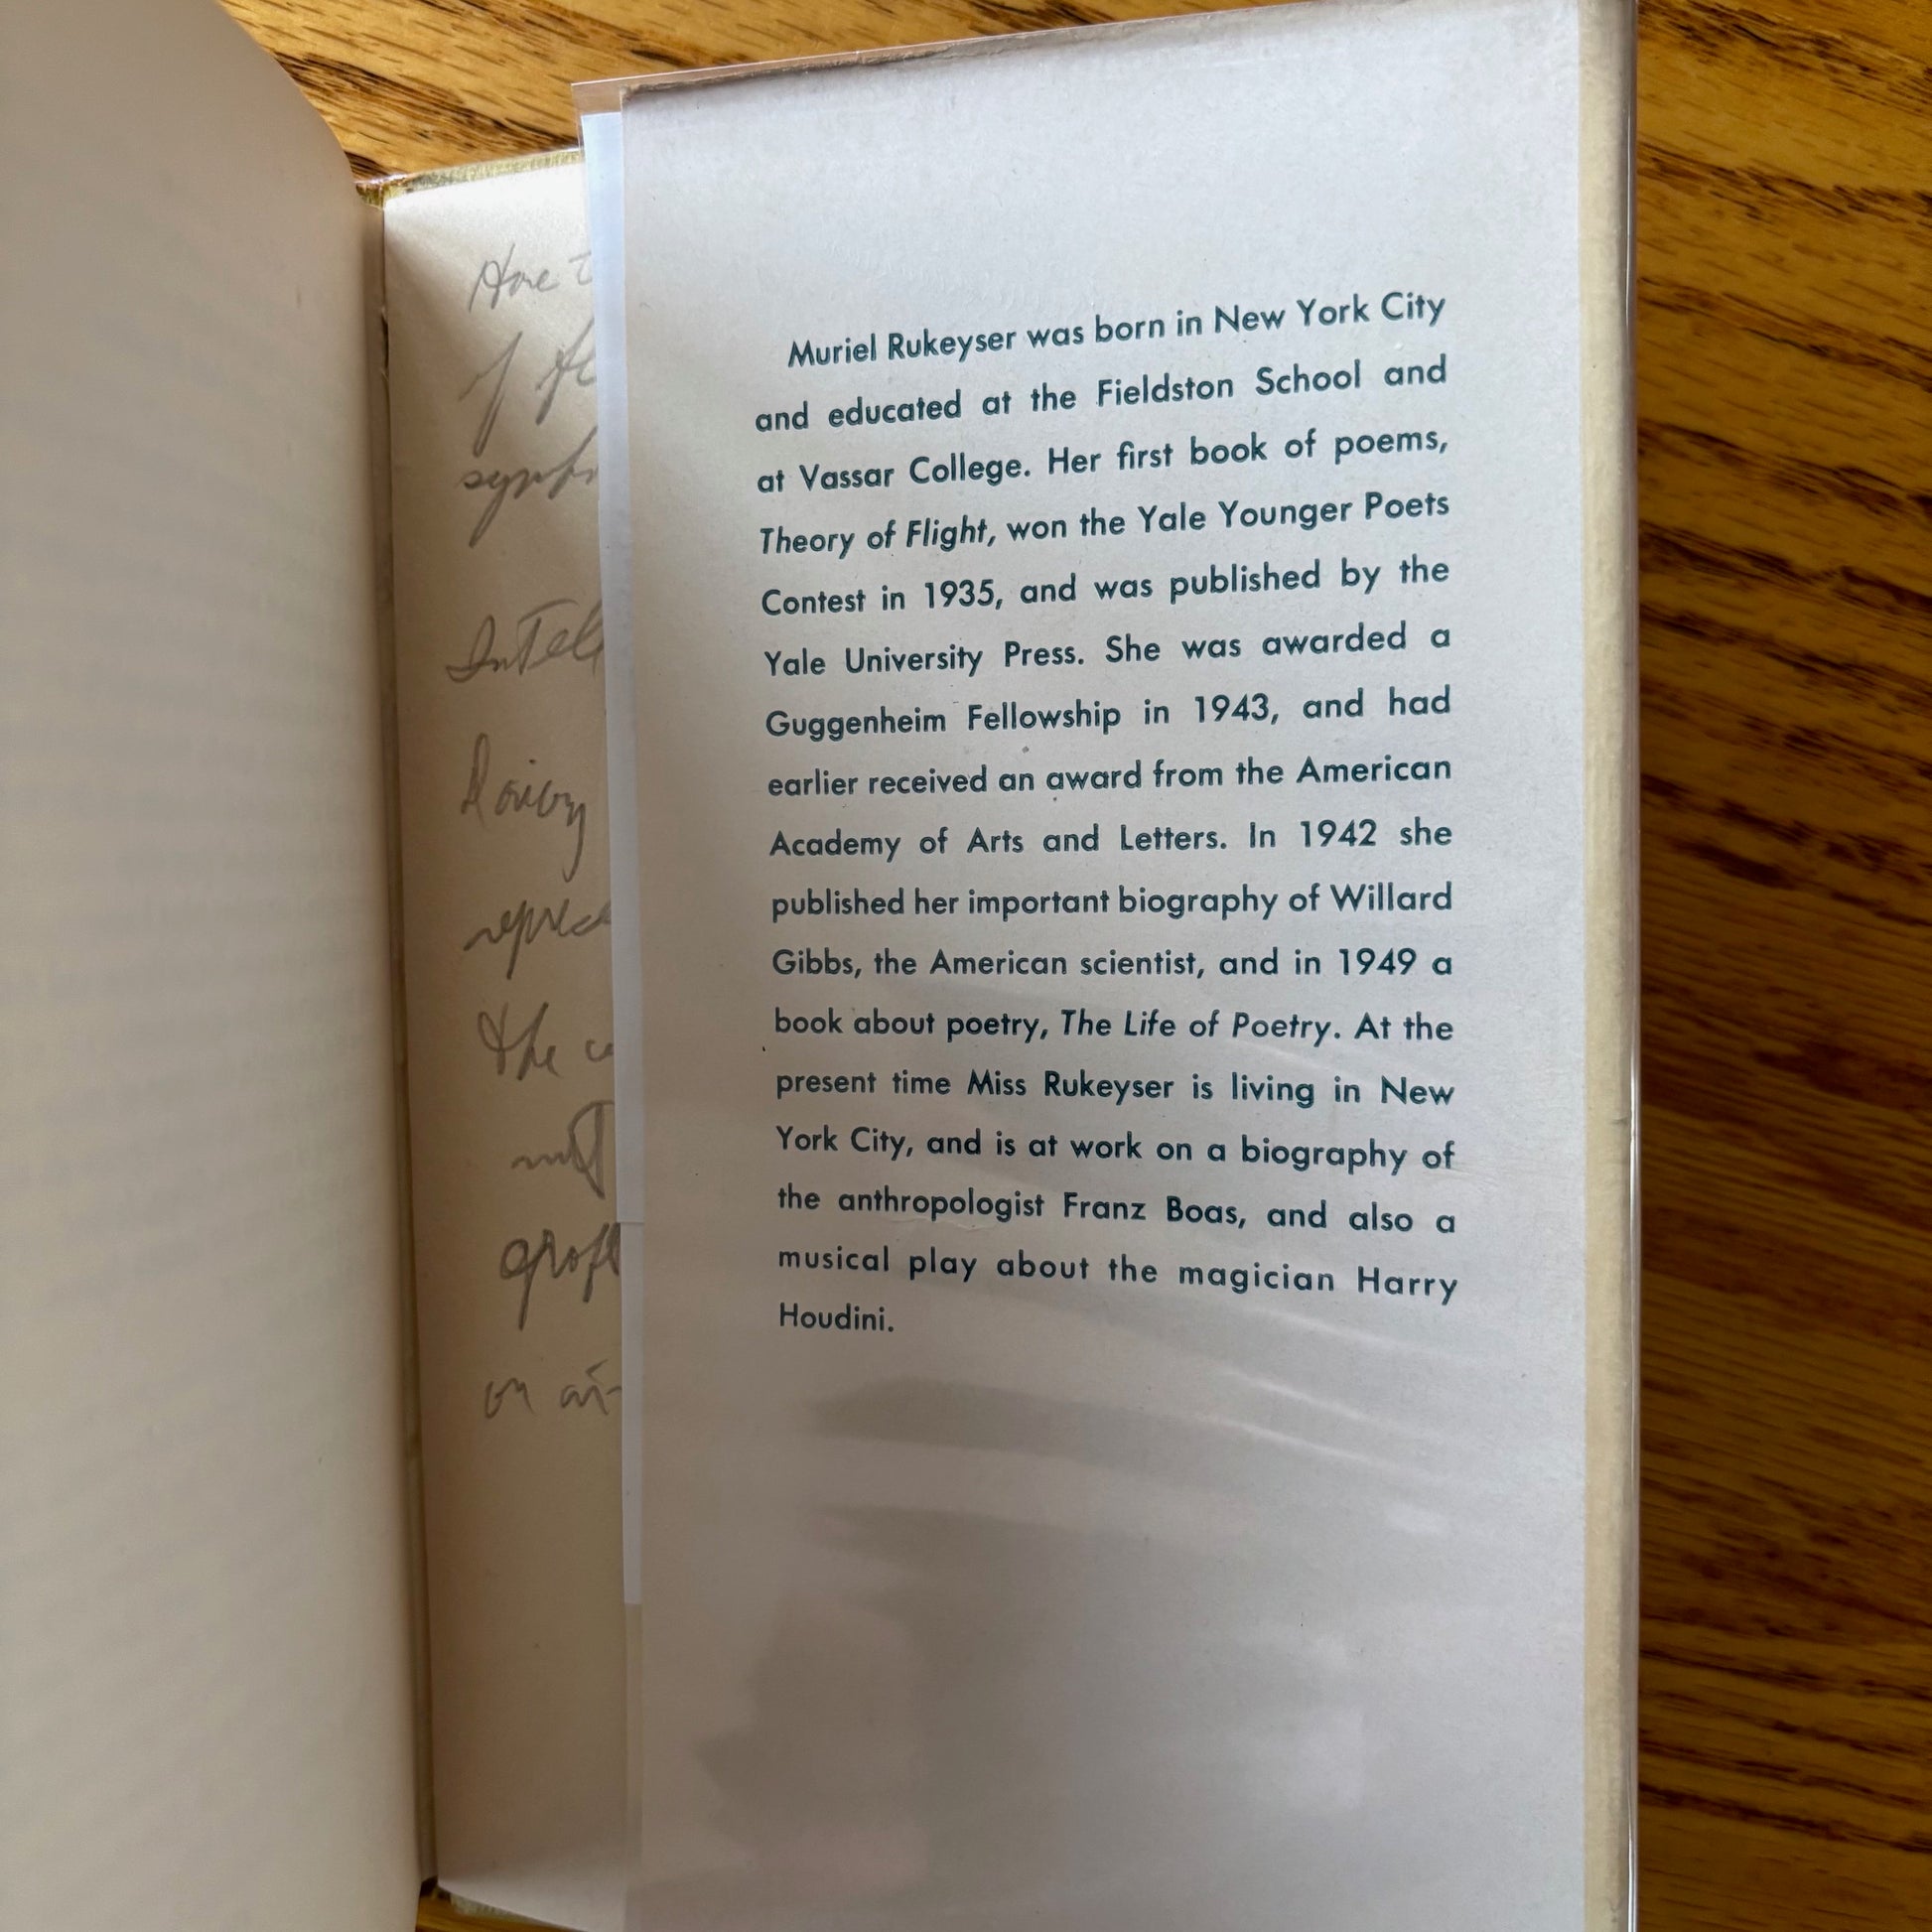 the
Muriel Rukeyser was born in New York City
and educated at the Fieldston School and
at Vassar College. Her first book of poems,
Theory of Flight, won the Yale Younger Poets
Contest in 1935, and was published by the
Yale University Press. She was awarded a
Guggenheim Fellowship in 1943, and had
earlier received an award from the American
Academy of Arts and Letters. In 1942 she
published her important biography of Willard
Gibbs, the American scientist, and in 1949 a
book about poetry, The Life of Poetry. At the
present time Miss Rukeyser is living in New
York City, and is at work on a biography of
the anthropologist Franz Boas, and also a
musical play about the magician Harry
Houdini.